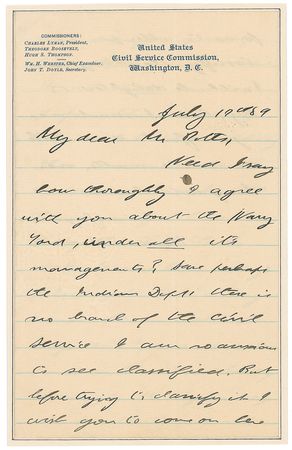 COMMISSIONERS:
CHARLES LYMAN, President.
THEODORE ROOSEVELT,
HUGH S. THOMPSON.
WM. H. WEBSTER, Chief Examiner,
JOHN T. DOYLE, Secretary.
United States
Civil Service Commission,
Washington, D. C.
July 19th 89
My dear Mr Potts,
Need I say
how thoroughly I agree
with you about the Navy
Yard, under all its
managements? Save perhaps
the Indian Dept. there is
no branch of the civil
service I am so anxious
to see classified. But
before trying to classify it I
wish you to come on here